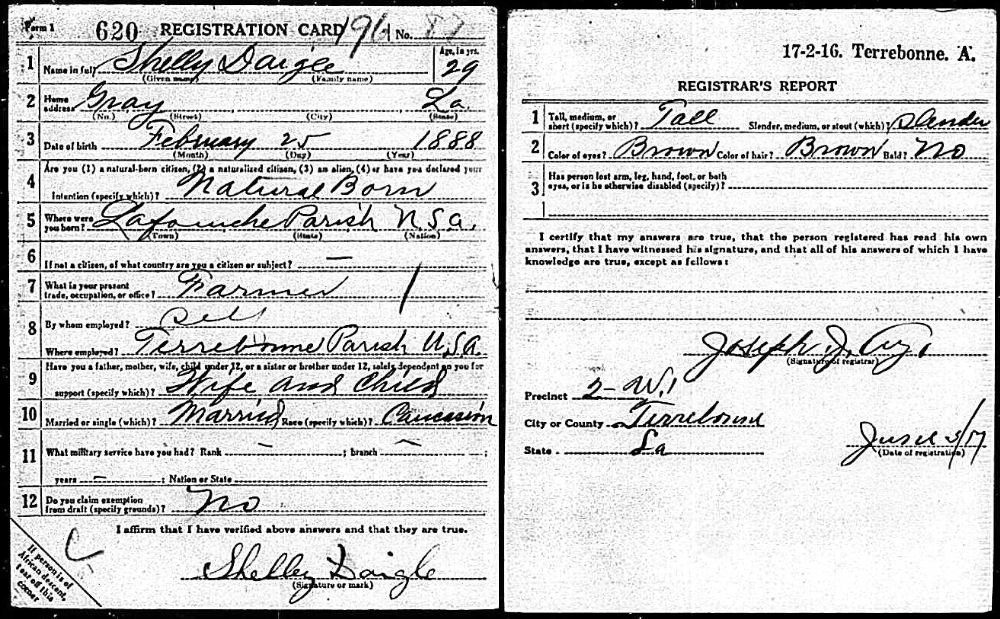 Form 1 620 REGISTRATION CARD 196 No. 87
1 Name in full Shelly Daigle Age, in yrs. 29
(Given name) (Family name)
2 Home address Gray La
(No.) (Street) (City) (State)
3 Date of birth February 25 1888
(Month) (Day) (Year)
4 Are you (1) a natural-born citizen, (2) a naturalized citizen, (3) an alien, (4) or have you declared your
intention (specify which)? Natural Born
5 Where were you born? Lafourche Parish U.S.a.
(Town) (State) (Nation)
6 If not a citizen, of what country are you a citizen or subject? —
7 What is your present trade, occupation, or office? Farmer
8 By whom employed? Self
Where employed? Terrebonne Parish U.S.A.
9 Have you a father, mother, wife, child under 12, or a sister or brother under 12, solely dependent on you for
support (specify which)? Wife and Child
10 Married or single (which)? Married Race (specify which)? Caucasion
11 What military service have you had? Rank — ; branch — ;
years — ; Nation or State
12 Do you claim exemption from draft (specify grounds)? No
I affirm that I have verified above answers and that they are true.
Shelley Daigle
(Signature or mark)
If person is of
African descent,
tear off this
corner
17-2-16. Terrebonne. A.
REGISTRAR'S REPORT
1 Tall, medium, or short (specify which)? Tall Slender, medium, or stout (which)? Slender
2 Color of eyes? Brown Color of hair? Brown Bald? No
3 Has person lost arm, leg, hand, foot, or both
eyes, or is he otherwise disabled (specify)?
I certify that my answers are true, that the person registered has read his own
answers, that I have witnessed his signature, and that all of his answers of which I have
knowledge are true, except as follows:
Joseph J.
(Signature of registrar)
Precinct 2-W.1
City or County Terrebonne
State La
June 5/17
(Date of registration)